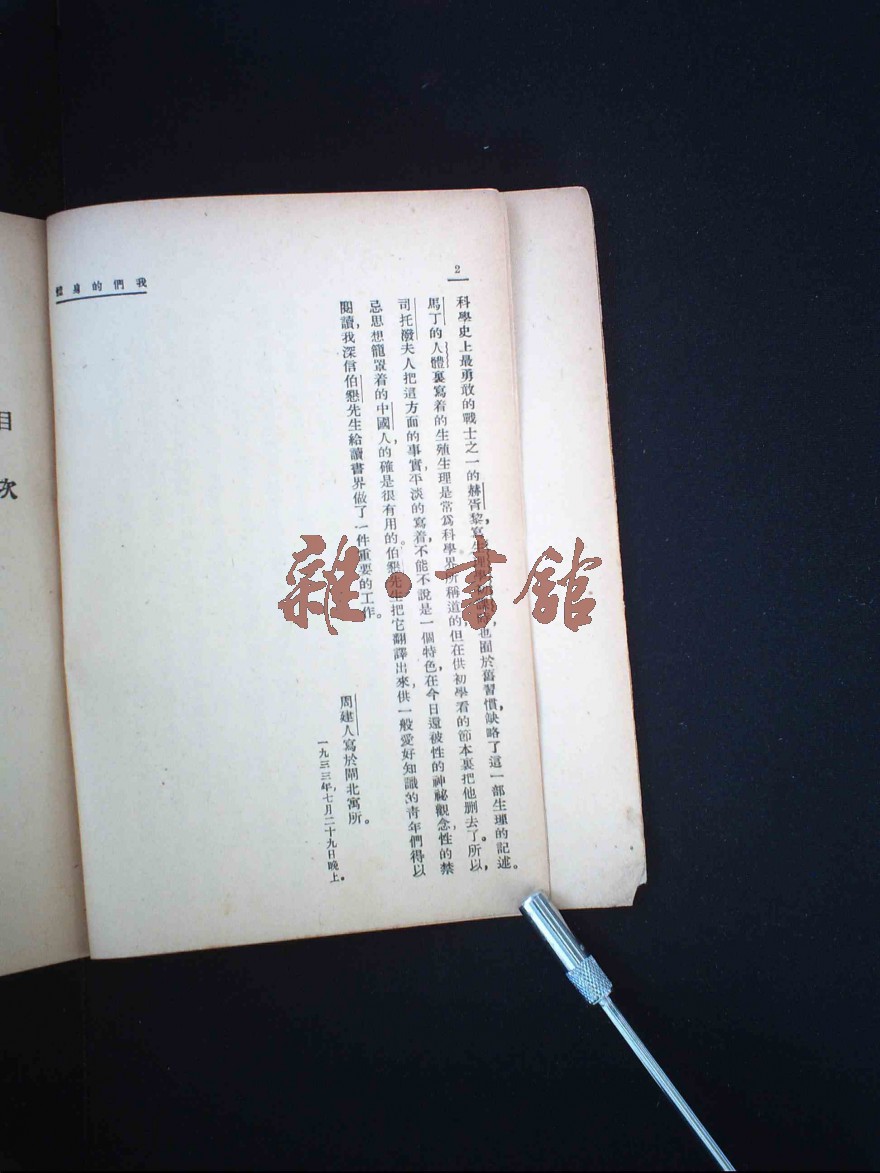 2
我們的身體
科學史上最勇敢的戰士之一的赫胥黎,寫生理學 也囿於舊習慣,缺略了這一部生理的記述。
馬丁的人體裏寫着的生殖生理是常爲科學界所稱道的但在供初學看的節本裏把他删去了。所以,
司托潑夫人把這方面的事實平淡的寫着,不能不說是一個特色在今日還被性的神祕觀念,性的禁
忌思想籠罩着的中國人,的確是很有用的。伯懇先生把它翻譯出來,供一般愛好知識的青年們得以
閱讀,我深信伯懇先生給讀書界做了一件重要的工作。
周建人寫於閘北寓所。
一九三三年七月二十九日晚上。
目次
雜·書館